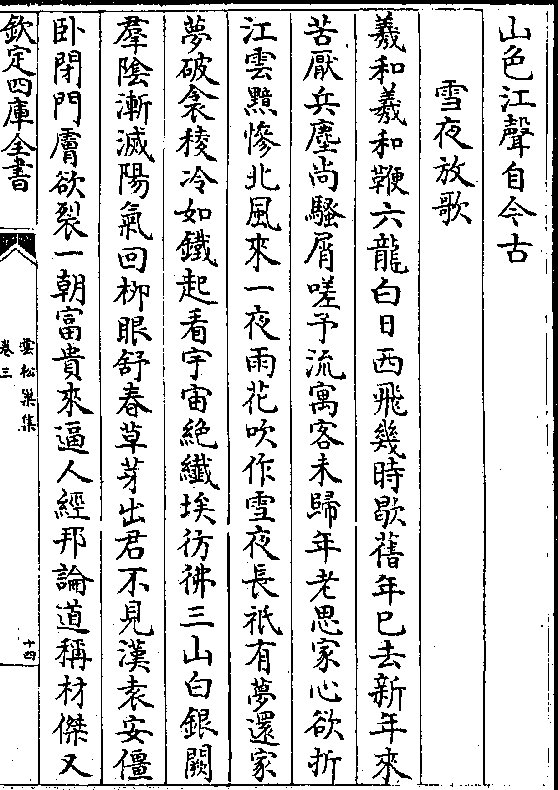 山色江聲自今古
雪夜放歌
羲和羲和鞭六龍白日西飛幾時歇舊年已去新年來
苦厭兵塵尚騷屑嗟予流寓客未歸年老思家心欲折
江雲黯慘北風來一夜雨花吹作雪夜長祇有夢還家
夢破衾稜冷如鐵起看宇宙絶纖埃彷彿三山白銀闕
羣陰漸滅陽氣回柳眼舒春草芽出君不見漢袁安僵
卧閉門膚欲裂一朝富貴來逼人經邦論道稱材傑又
欽定四庫全書
雲松巢集
卷三
十四